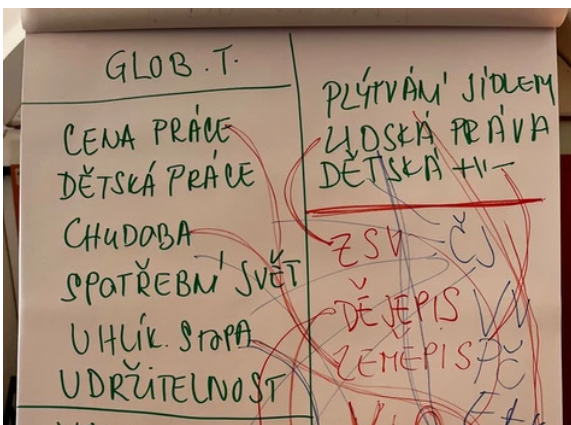 GLOB. T.
CENA PRÁCE
DĚTSKÁ PRÁCE
CHUDOBA
SPOTŘEBNÍ SVĚT
UHLÍK. STOPA
UDRŽITELNOST
PLÝTVÁNÍ JÍDLEM
LIDSKÁ PRÁVA
DĚTSKÁ —11—
ZSV ČJ
DĚJEPIS VV
ZEMĚPIS PČ